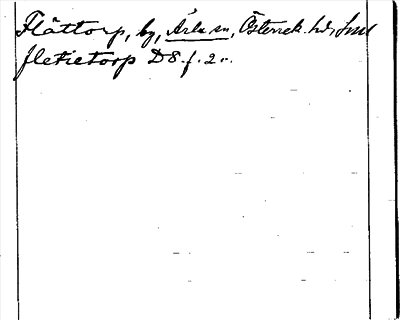 Flättorp, by, Ärla sn, Österrek. hd, Sml
fletietorp D8. f. 2 v.